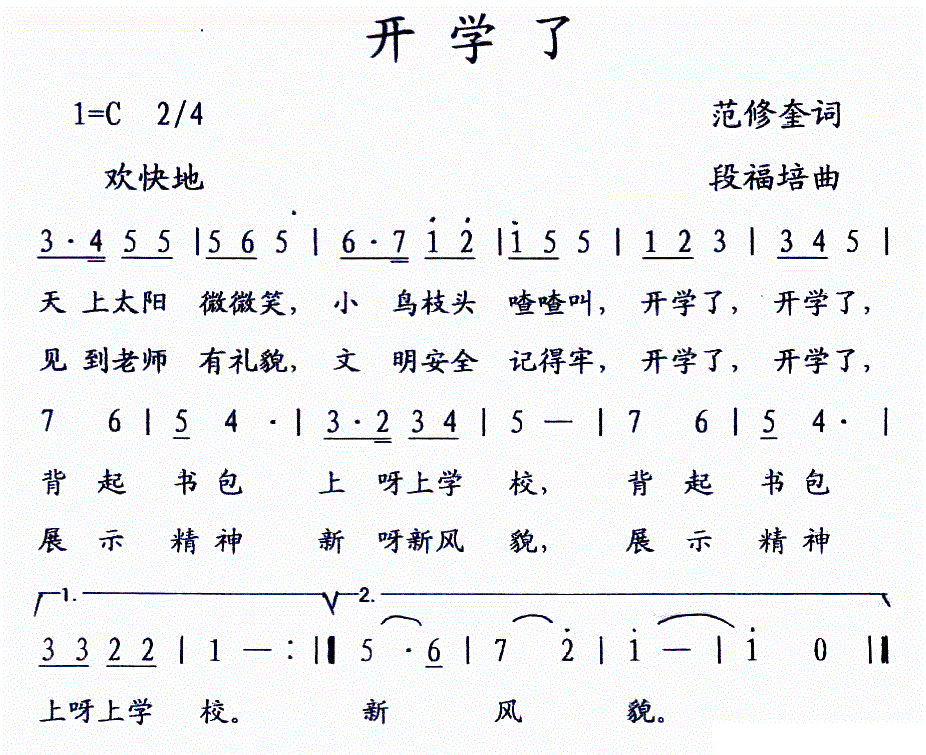 开学了
1=C 2/4 范修奎词
欢快地 段福培曲
3·4 5 5 | 5 6 5̇ | 6·7 1̇ 2̇ | 1̇ 5 5 | 1 2 3 | 3 4 5 |
天上太阳 微微笑，小 鸟枝头 喳喳叫，开学了，开学了，
见到老师 有礼貌，文 明安全 记得牢，开学了，开学了，
7 6 | 5 4 · | 3·2 3 4 | 5 — | 7 6 | 5 4· |
背起 书包 上 呀上学 校，背起 书包
展示 精神 新 呀新风 貌，展示 精神
1. 2.
3 3 2 2 | 1 — :‖ 5 ·6 | 7 2̇ | 1̇ — | 1̇ 0 ‖
上呀上学 校。 新 风 貌。